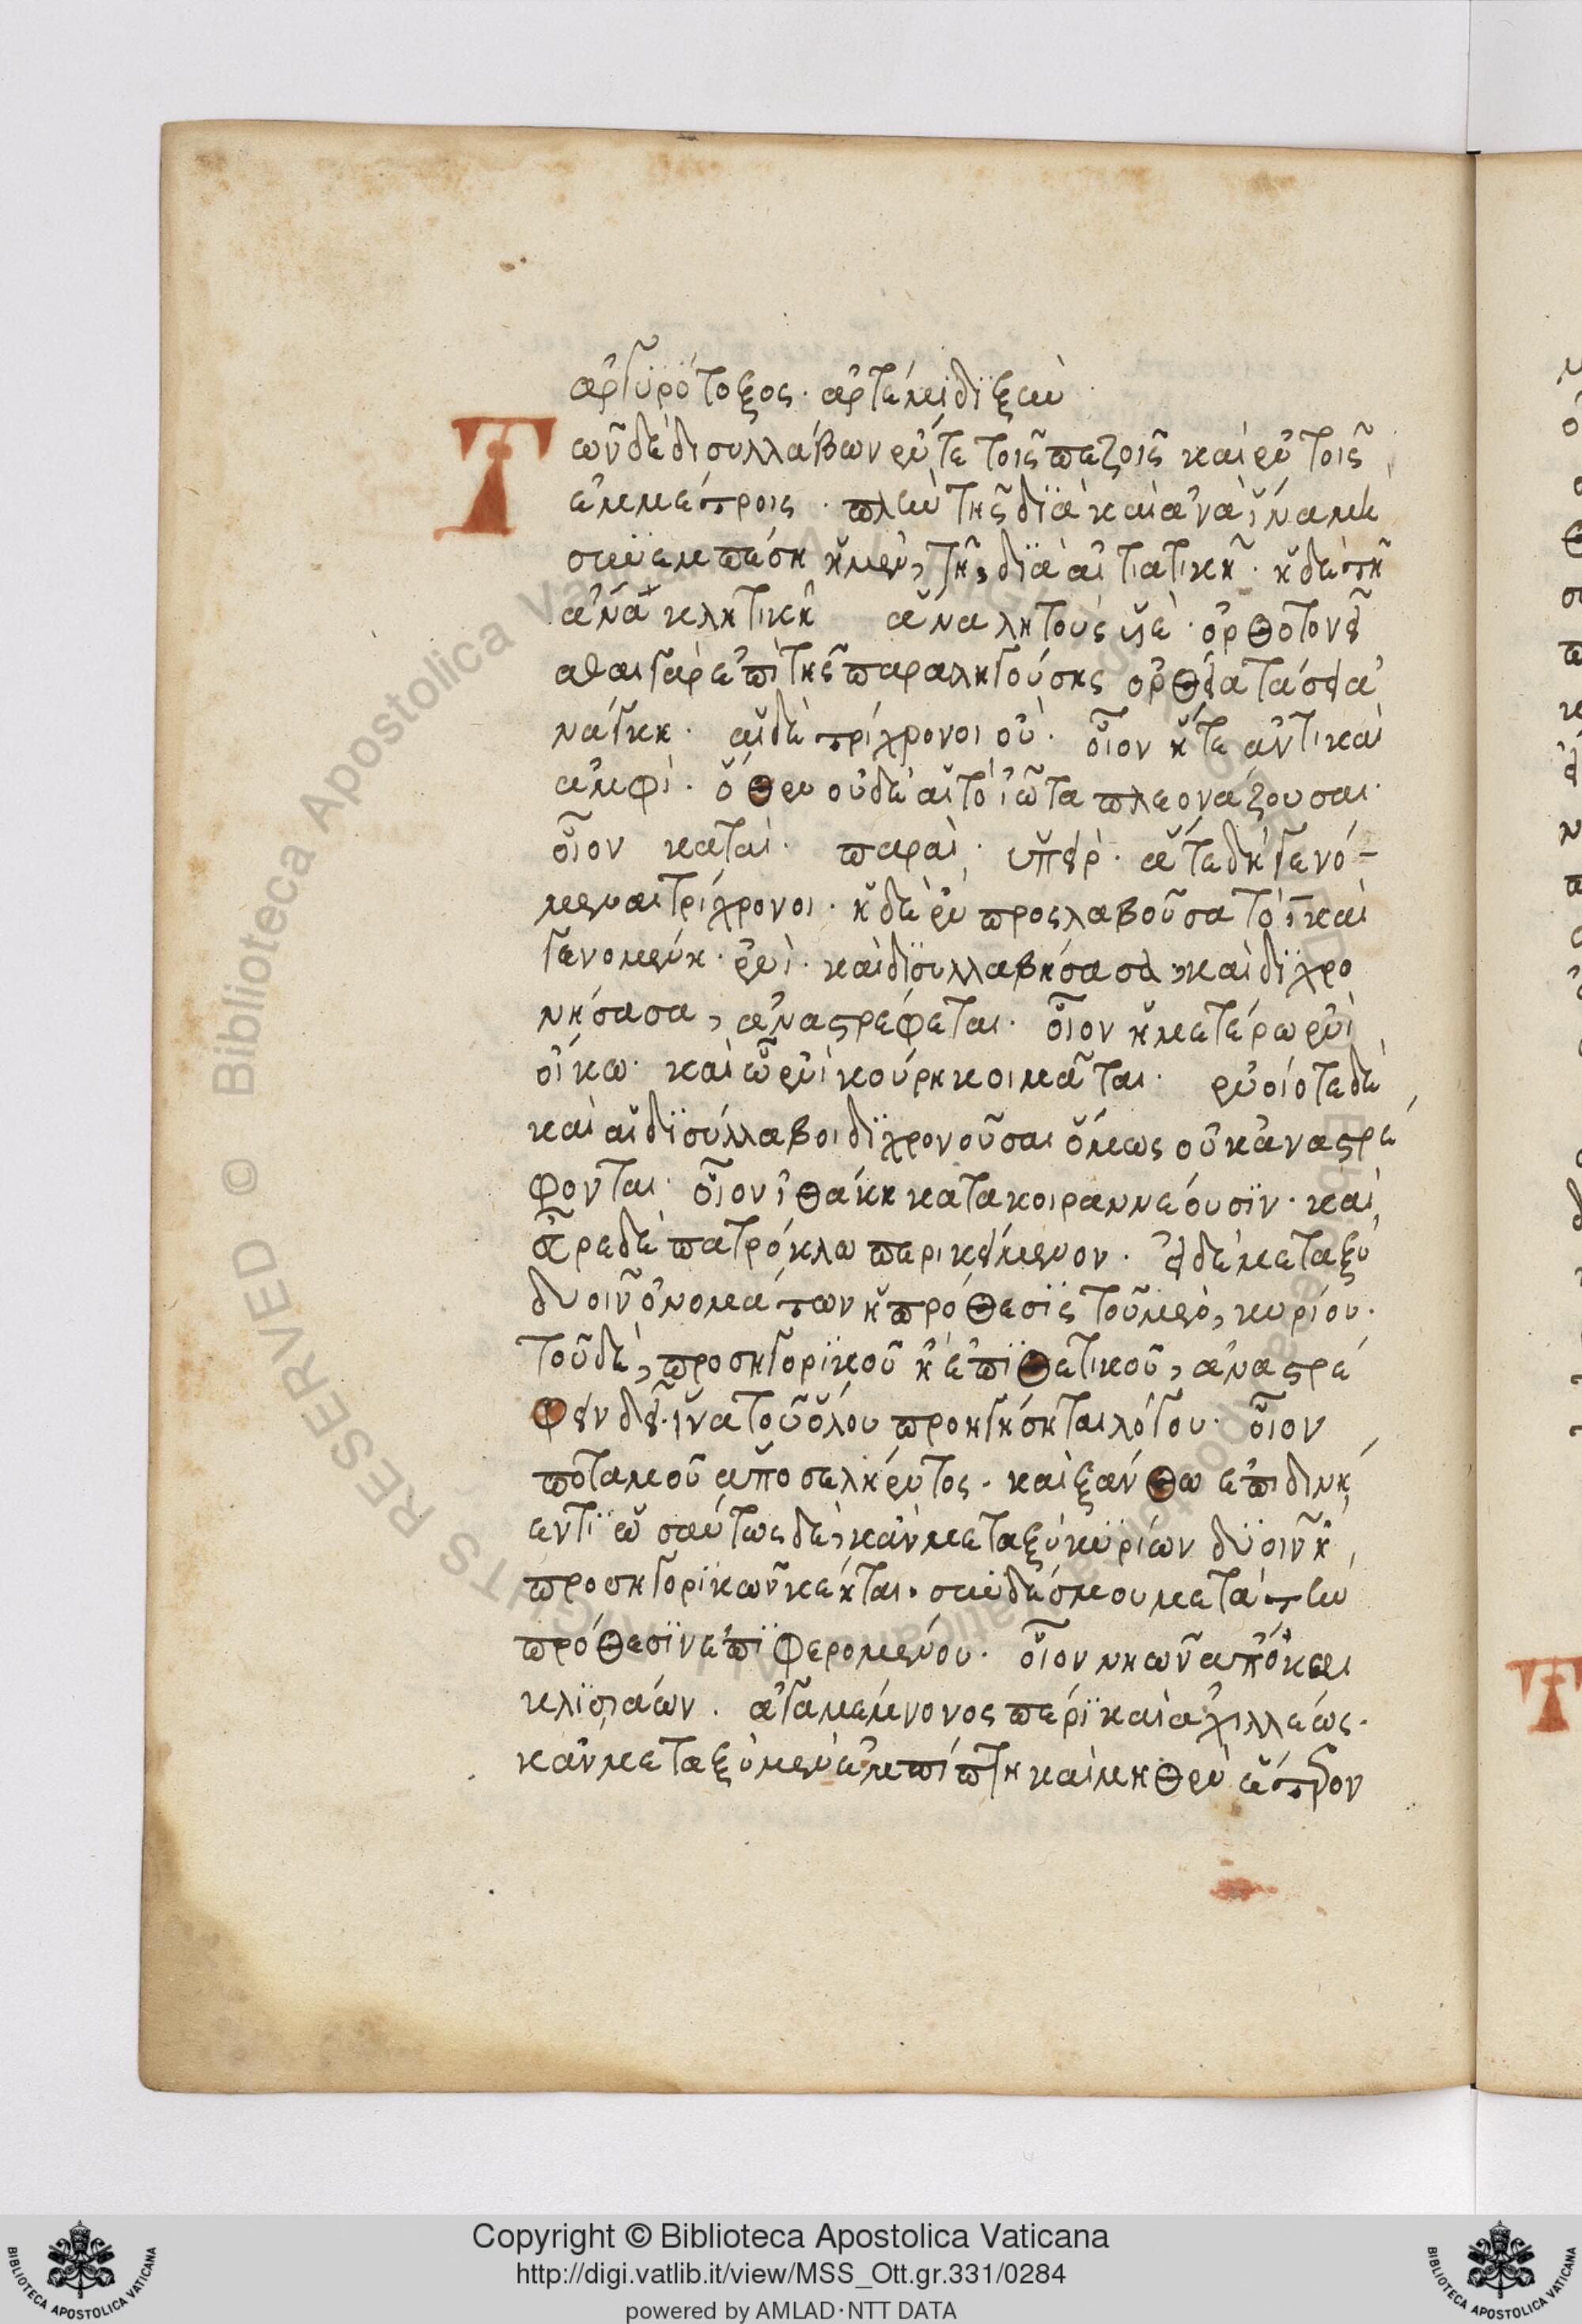 ἀργυρότοξος· ἀρτέμιδι ξὺν
Τῶν δὲ δισυλλάβων ἔν τε τοῖς πεζοῖς καὶ ἐν τοῖς
ἐμμέτροις· πλὴν τῆς διὰ καὶ ἀνὰ ἵνα μὴ
συνεμπέση ἡ μὲν, τῆ, διὰ αἰτιατικῆ· ἡ δὲ τῆ
ἀνὰ κλητικῆ ἄνα λητοῦς υἱὲ· ὀρθοτονεῖ
αθαι γὰρ ἐπὶ τῆς παραληγούσης ὀρθεῖα τάσει ἀ
νάγκη· αἱ δὲ τρίχρονοι οὐ· οἷον ἥ τε ἀντὶ καὶ
ἀμφὶ· ὅθεν οὐδὲ αἱ τὸ ἰῶτα πλεονάζουσαι·
οἷον καταὶ· παραὶ· ὑπεὶρ· ἅτε δὴ γενό-
μεναι τρίχρονοι· ἡ δὲ ἐν προσλαβοῦσα τὸ ῑ καὶ
γενομένη· ἐνὶ· καὶ δισυλλαβήσασα, καὶ διχρο
νήσασα, ἀναστρέφεται· οἷον ἡμετέρω ἐνὶ
οἴκω· καὶ ὧ ἐνὶ κούρη κοιμᾶται· ἐνοίοτε δὲ
καὶ αἱ δισύλλαβοι διχρονοῦσαι ὅμως οὐκ ἀναστρέ
φονται· οἷον ἰθάκη κατακοιραννέουσιν· καὶ
ὧρε δὲ πατρόκλω περικείμενον· εἰ δὲ μεταξὺ
δυοῖν ὀνομάτων ἡ πρόθεσις τοῦ μὲν, κυρίου·
τοῦ δὲ, προσηγορικοῦ ἢ ἐπιθετικοῦ, ἀναστρέ
φειν δεῖ· ἵνα τοῦ ὅλου προηγήσηται λόγου· οἷον
ποταμοῦ ἄπο σελήεντος· καὶ ξάνθω ἐπι δινή
εντι ὡσαύτως δὲ, κἂν μεταξὺ κυρίων δυοῖν ἢ
προσηγορικῶν κέηται· συνδέσμου μετὰ τὴν
πρόθεσιν ἐπιφερομένου· οἷον νηῶν ἄπο καὶ
κλισιάων· ἀγαμέμνονος πέρι καὶ ἀχιλλέως·
κἂν μεταξὺ μὲν ἐμπίπτη καὶ μηθὲν ἄστρον